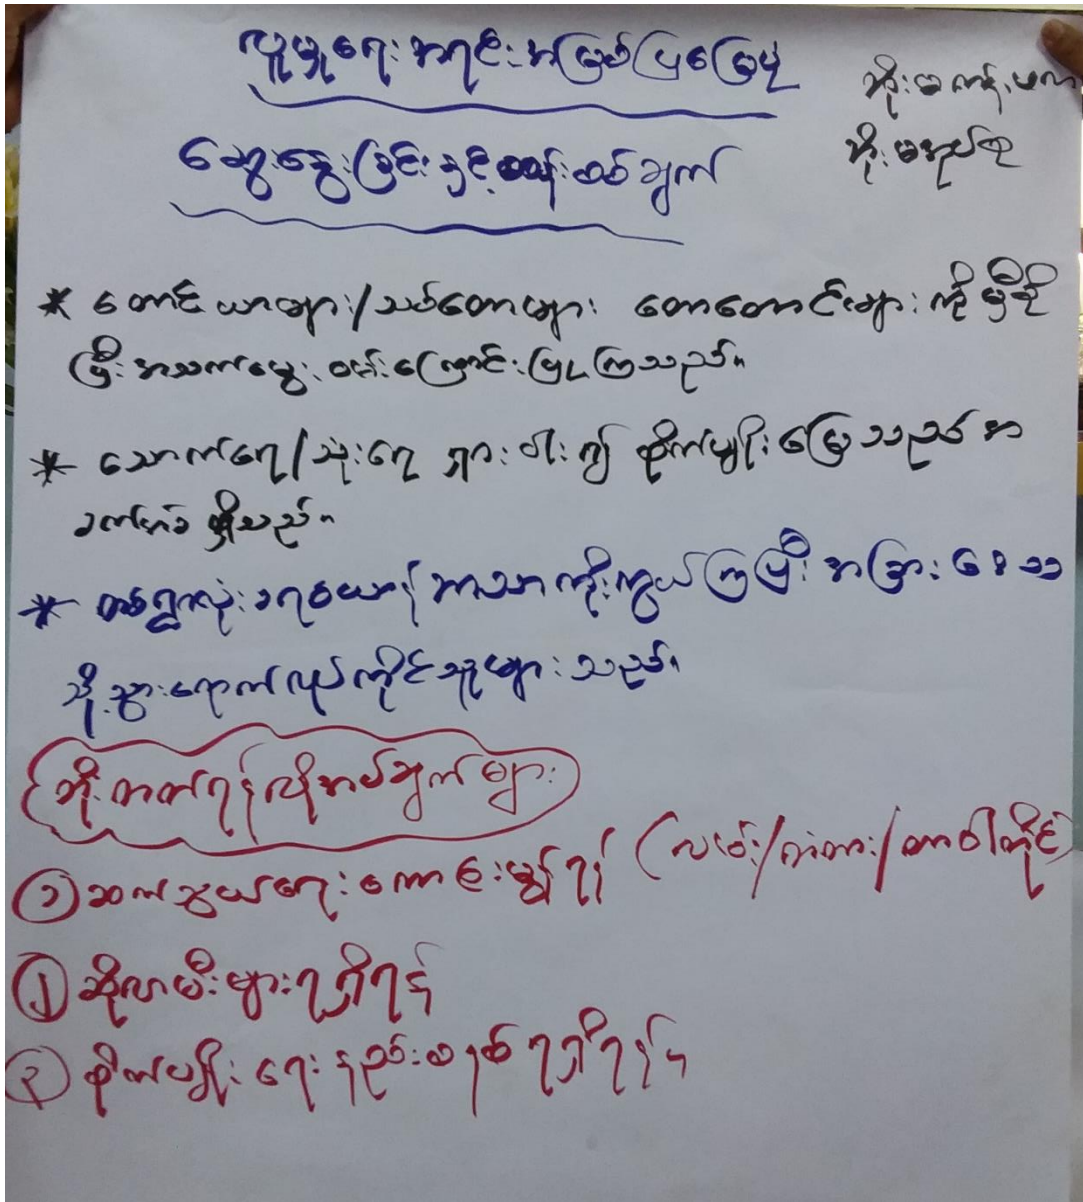 လူမှုရေး အရင်းအမြစ်ပြမြေပုံ
ဆွေးနွေးခြင်းနှင့်စာန်းစစ်ချက်
* တောင်ယာများ/သစ်တောများ တောတောင်များကိုမှီခို
ပြီး အသက်မွေးဝမ်းကြောင်းပြုကြသည်။
* သောက်ရေ/သုံးရေ ရှားပါး၍ စိုက်ပျိုးမြေသည် အ
ခက်အခဲရှိသည်။
* တစ်ရွာလုံး ခရစ်ယာန်ဘာသာကိုးကွယ်ကြပြီး အခြားဒေသ
သို့သွားရောက်လုပ်ကိုင်သူများသည်။
တိုးတက်ရန်လိုအပ်ချက်များ
၁ ဆက်သွယ်ရေးကောင်းမွန်ရန် (လမ်း/တံတား/တာဝါတိုင်)
၂ ဆိုလာမီးများရရှိရန်
၃ စိုက်ပျိုးရေးနည်းစနစ်ရရှိရန်။